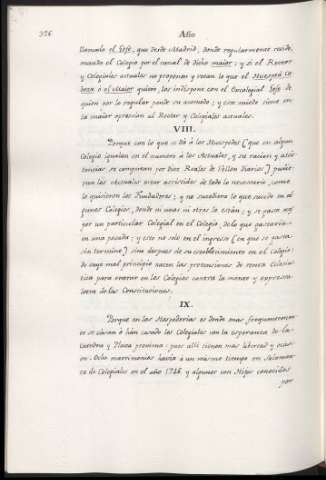 376
Año
llamarlo el Gefe, que desde Madrid, donde regularmente reside,
manda el Colegio por el ramal de dicho maior; y si el Rector
y Colegiales actuales no proponen y votan lo que el Huesped, Ca
beza ó el Maior quiere, los indispone con el Concolegial Gefe de
quien por lo regular pende su acomodo; y este miedo tiene en
la maior opresion al Rector y Colegiales actuales.
VIII.
Porque con lo que se dá á los Huespedes (que en algun
Colegio igualan en el numero á los Actuales, y su racion y asis
tencias se computan por diez Reales de Vellon diarios) pudie
ran los Actuales estar asistidos de todo lo necesario, como
lo quisieron los Fundadores; y no sucediera lo que sucede en al
gunos Colegios, donde ni unos ni otros lo están; y se gasta mas
por un particular Colegial en el Colegio, de lo que gastaria
en una posada; y esto no solo en el ingreso (en que se gasta
sin termino) sino despues de su establecimiento en el Colegio;
de cuyo mal principio nacen las pretensiones de renta Eclesias
tica para entrar en los Colegios contra la mente y expresa
letra de las Constituciones.
IX.
Porque en las Hospederias es donde mas frequentemen
te se casan ó han casado los Colegiales con la esperanza de la
Cathedra y Plaza proxima: pues alli tienen mas libertad y ocasi
on. Ocho matrimonios havia á un mismo tiempo en Salaman
ca de Colegiales en el año 1748 y algunos con Hijos conocidos
por